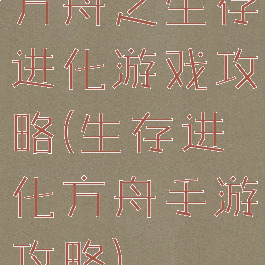 方舟之生存
进化游戏攻
略(生存进
化方舟手游
攻略)